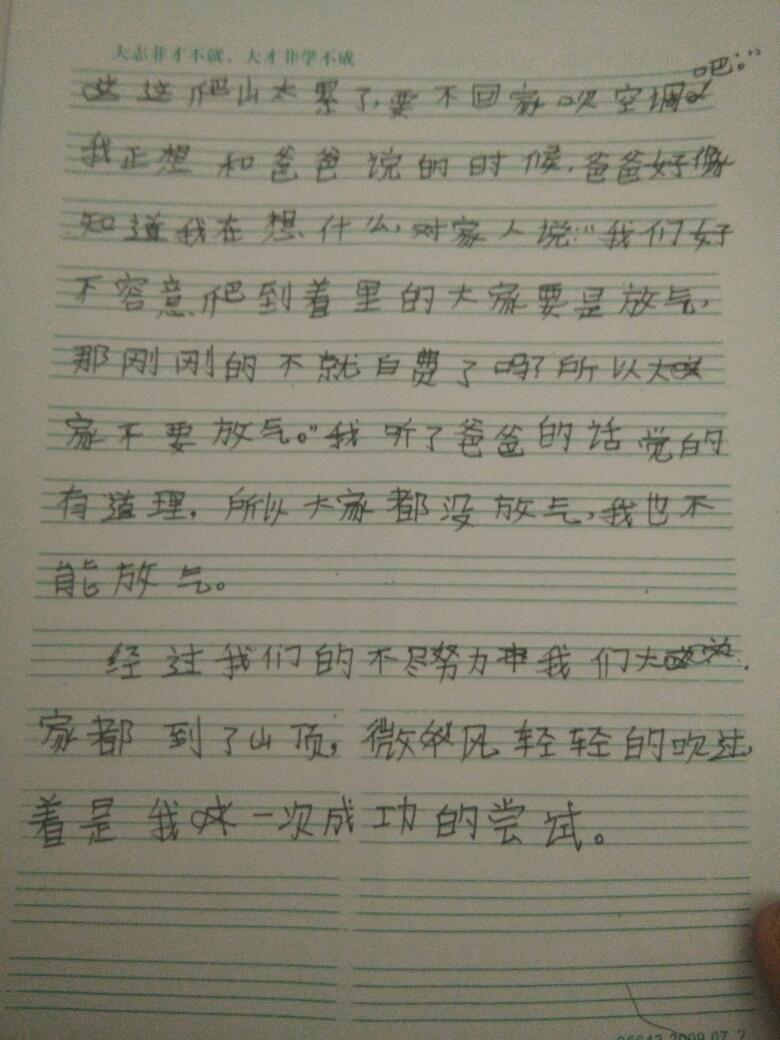 大志非才不就，大才非学不成
这爬山太累了，要不回家吹空调吧："
我正想和爸爸说的时候，爸爸好像
知道我在想什么，对家人说："我们好
不容意爬到着里的大家要是放气，
那刚刚的不就白费了吗？所以大
家不要放气。"我听了爸爸的话觉的
有道理，所以大家都没放气，我也不
能放气。
经过我们的不尽努力中我们大
家都到了山顶，微风轻轻的吹过，
着是我一次成功的尝试。